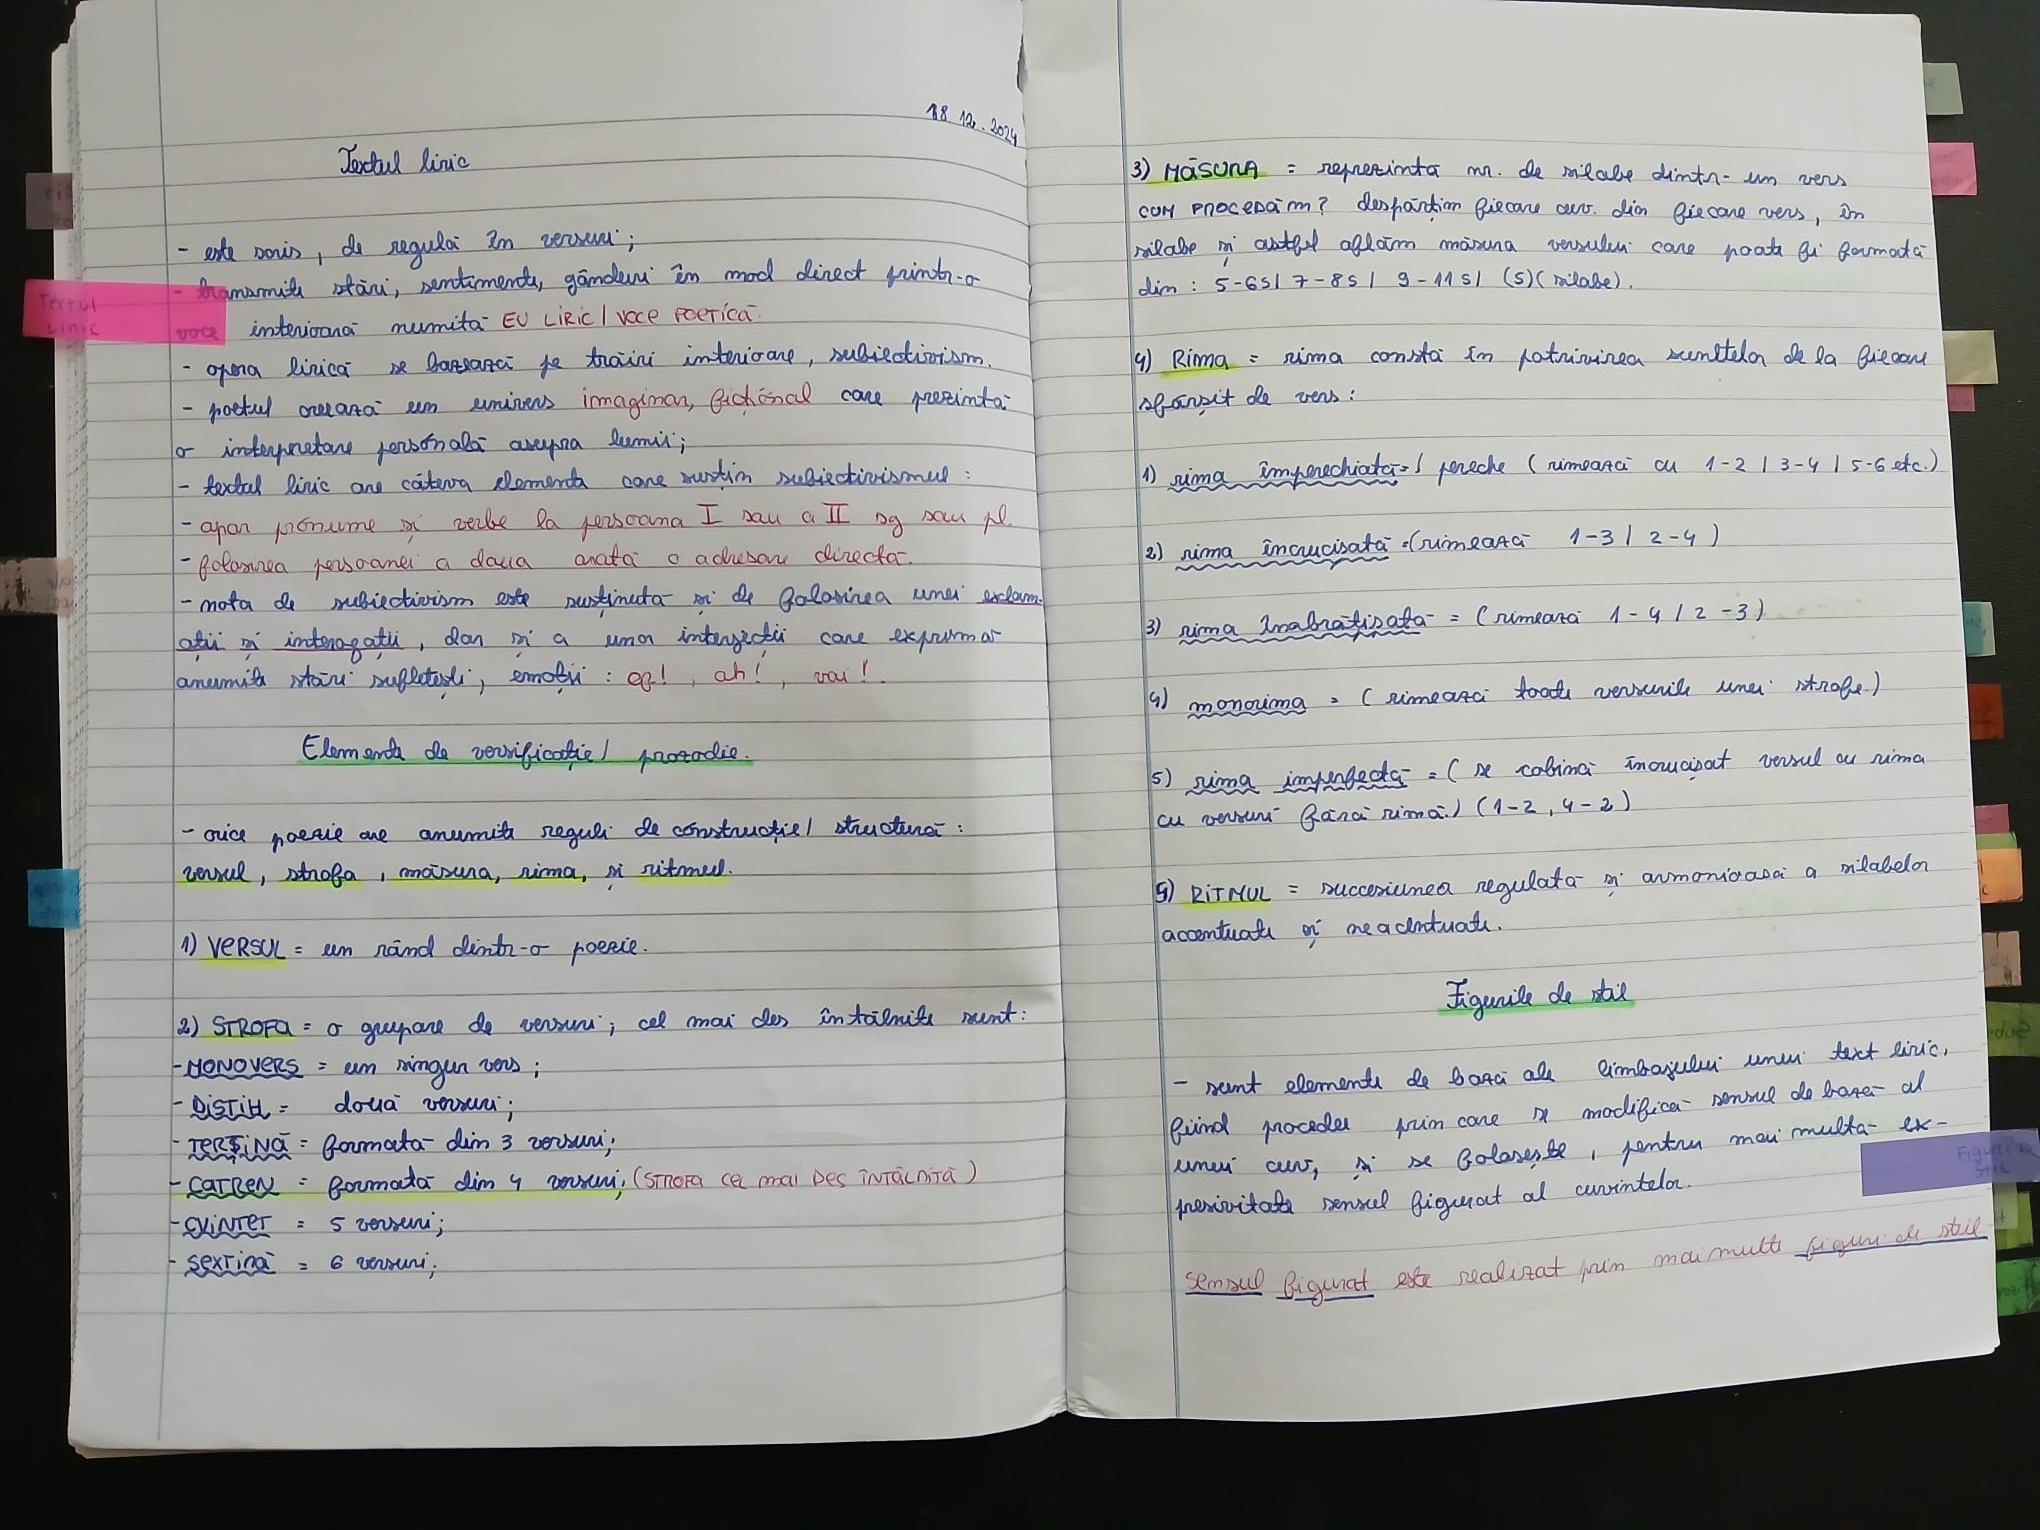 18.12.2024
Textul liric
- este scris, de regulă în versuri;
- transmite stări, sentimente, gânduri în mod direct printr-o
voce interioară numită EU LIRIC / VOCE POETICĂ.
- opera lirică se bazează pe trăiri interioare, subiectivism.
- poetul creează un univers imaginar, ficțional care prezintă
o interpretare personală asupra lumii;
- textul liric are câteva elemente care susțin subiectivismul:
- apar pronume și verbe la persoana I sau a II sg sau pl.
- folosirea persoanei a doua arată o adresare directă.
- nota de subiectivism este susținută și de folosirea unei exclam-
ații și interogații, dar și a unor interjecții care exprimă
anumite stări sufletești, emoții: of!, ah!, vai!.
Elemente de versificație / prozodie.
- orice poezie are anumite reguli de construcție / structură:
versul, strofa, măsura, rima, și ritmul.
1) VERSUL = un rând dintr-o poezie.
2) STROFA = o grupare de versuri; cel mai des întâlnite sunt:
- MONOVERS = un singur vers;
- DISTIH = două versuri;
- TERȘINĂ = formată din 3 versuri;
- CATREN = formată din 4 versuri; (STROFA CEL MAI DES ÎNTÂLNITĂ)
- CVINTET = 5 versuri;
- SEXTINĂ = 6 versuri;
Textul
Liric
3) MĂSURA = reprezintă nr. de silabe dintr-un vers
CUM PROCEDĂM? despărțim fiecare cuv. din fiecare vers, în
silabe și astfel aflăm măsura versului care poate fi formată
din: 5-6s / 7-8s / 9-11s / (s)(silabe).
4) Rima = rima constă în potrivirea sunetelor de la fiecare
sfârșit de vers:
1) rima împerechiată = / pereche (rimează cu 1-2 / 3-4 / 5-6 etc.)
2) rima încrucișată = (rimează 1-3 / 2-4)
3) rima îmbrățișată = (rimează 1-4 / 2-3)
4) monorima = (rimează toate versurile unei strofe.)
5) rima imperfectă = (se cobină încrucișat versul cu rima
cu versuri fără rimă.) (1-2, 4-2)
5) RITMUL = succesiunea regulată și armonioasă a silabelor
accentuate și neaccentuate.
Figurile de stil
- sunt elemente de bază ale limbajului unui text liric,
fiind procedee prin care se modifică sensul de bază al
unui cuv, și se folosește, pentru mai multă ex-
presivitate sensul figurat al cuvintelor.
Sensul figurat este realizat prin mai multe figuri de stil